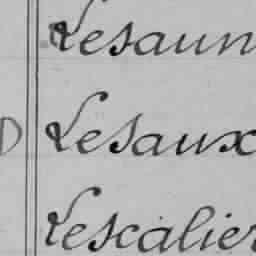 Lesaun
D Lesaux
Lescalier